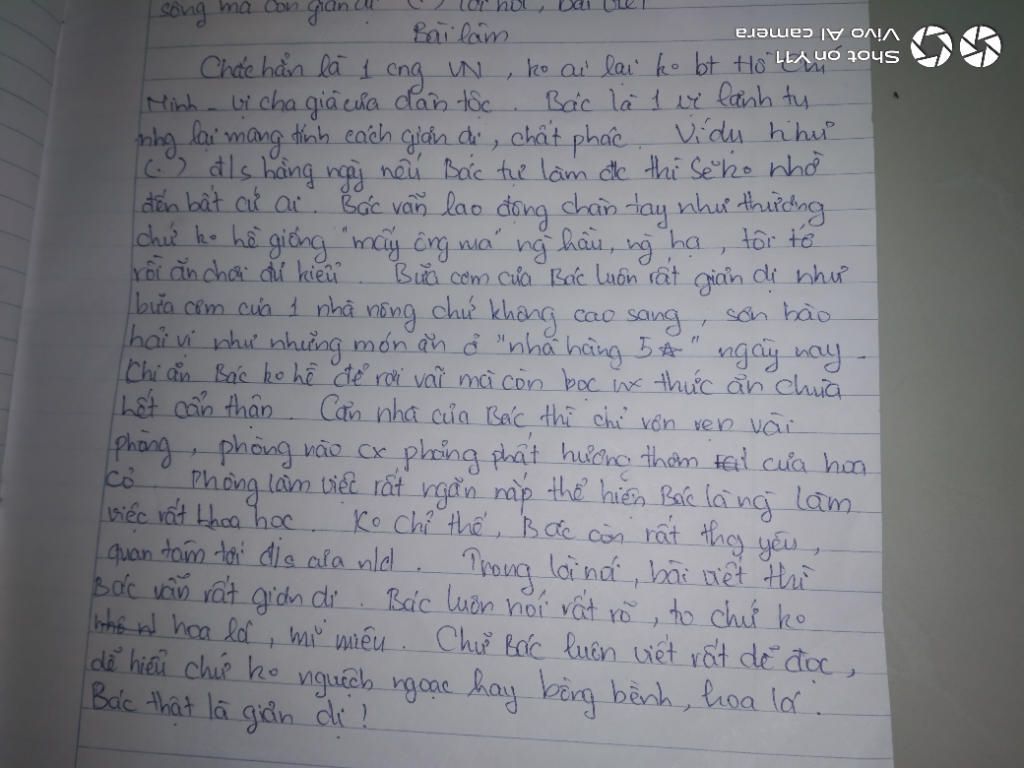 sống mà còn giản dị (.) lời nói, bài viết
Bài làm
Chắc hẳn là 1 cng VN, ko ai lại ko bt Hồ Chí
Minh - vị cha già của dân tộc. Bác là 1 vị lãnh tụ
nhg lại mang tính cách giản dị, chất phác. Ví dụ như
(.) đ/s hằng ngày nếu Bác tự làm đc thì sẽ ko nhờ
đến bất cứ ai. Bác vẫn lao động chân tay như thường
chứ ko hề giống "mấy ông vua" ng hầu, ng hạ, tôi tớ
rồi ăn chơi đủ kiểu. Bữa cơm của Bác luôn rất giản dị như
bữa cơm của 1 nhà nông chứ không cao sang, sơn hào
hải vị như những món ăn ở "nhà hàng 5☆" ngày nay.
Khi ăn Bác ko hề để rơi vãi mà còn bọc thức ăn chưa
hết cẩn thận. Căn nhà của Bác thì chỉ vỏn vẹn vài
phòng, phòng nào cx phảng phất hương thơm của hoa
cỏ. Phòng làm việc rất ngăn nắp thể hiện Bác là ng làm
việc rất khoa học. Ko chỉ thế, Bác còn rất thg yêu,
quan tâm tới đ/s của nld. Trong lời nói, bài viết thì
Bác vẫn rất giản dị. Bác luôn nói rất rõ, to chứ ko
hoa lá, mĩ miều. Chữ Bác luôn viết rất dễ đọc,
dễ hiểu chứ ko nguệch ngoạc hay bồng bềnh, hoa lá.
Bác thật là giản dị!
Shot on Y11
Vivo AI camera